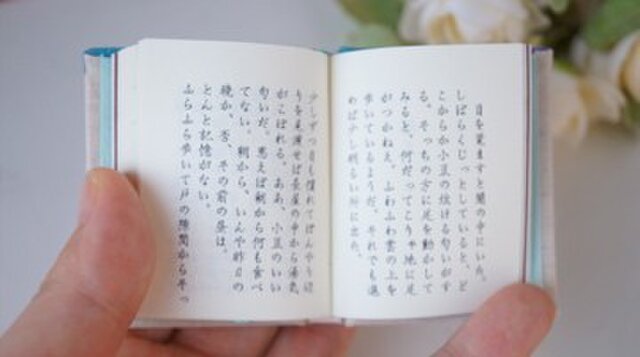 目を覚ますと闇の中にいた。
しばらくじっとしていると、ど
こからか小豆の炊ける匂いがす
る。そっちの方に足を動かして
みると、何だってこりゃ地に足
がつかねえ。ふわふわ雲の上を
歩いているようだ。それでも進
めば少し明るい所に出た。
少しずつ目も慣れてぼんやり辺
りを見渡せば長屋の中から湯気
がこぼれる。ああ、小豆のいい
匂いだ。思えば朝から何も食べ
てない。朝から、いんや昨日の
晩か、否、その前の昼は。
とんと記憶がない。
ふらふら歩いて戸の隙間からそっ